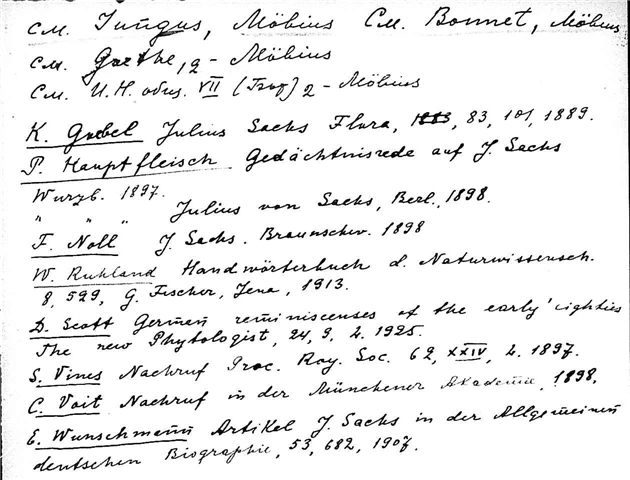 см. Jungus, Möbius См. Bonnet, Möbius
см. Goethe, 2 - Möbius
См. U.H. odus. VII (Tzag) 2 - Möbius
K. Goebel Julius Sachs Flora, 83, 101, 1889.
P. Hauptfleisch Gedächtnisrede auf J. Sachs
Wurzb. 1897.
" " " Julius von Sachs, Berl, 1898.
F. Noll J. Sachs. Braunschw. 1898
W. Ruhland Handwörterbuch d. Naturwissensch.
8, 529, G. Fischer, Jena, 1913.
D. Scott German reminiscenses of the early' eighties
The new Phytologist, 24, 9, 2. 1925.
S. Vines Nachruf Proc. Roy. Soc. 62, XXIV, 2. 1897.
C. Voit Nachruf in der Münchener Akademie, 1898.
E. Wunschmann Artikel J. Sachs in der Allgemeinen
deutschen Biographie, 53, 682, 1907.